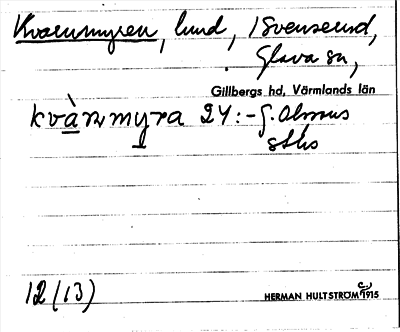 Kvarnmyren, lund, 1 Svenserud,
Glava sn,
Gillbergs hd, Värmlands län
kvàrnmyra 24:-
12 (13)
HERMAN HULTSTRÖM 1915